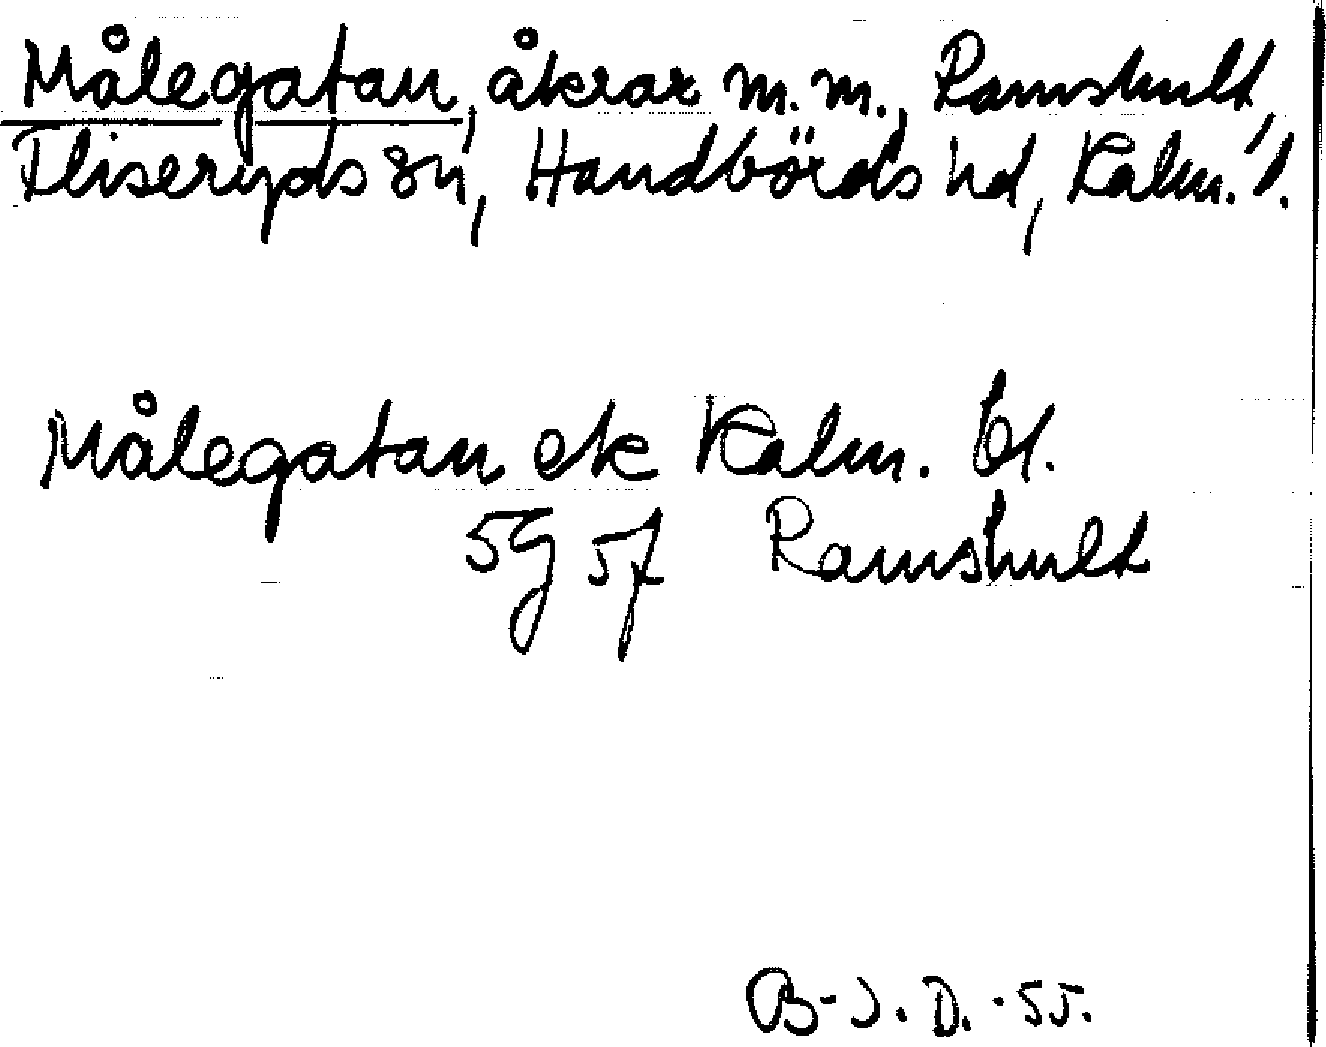 Målegatan, åkrar m.m., Ramshult,
Fliseryds sn, Handbörds hd, Kalm. l.
Målegatan ek Kalm. bl.
5g 5f Ramshult
B-J. D. -55.